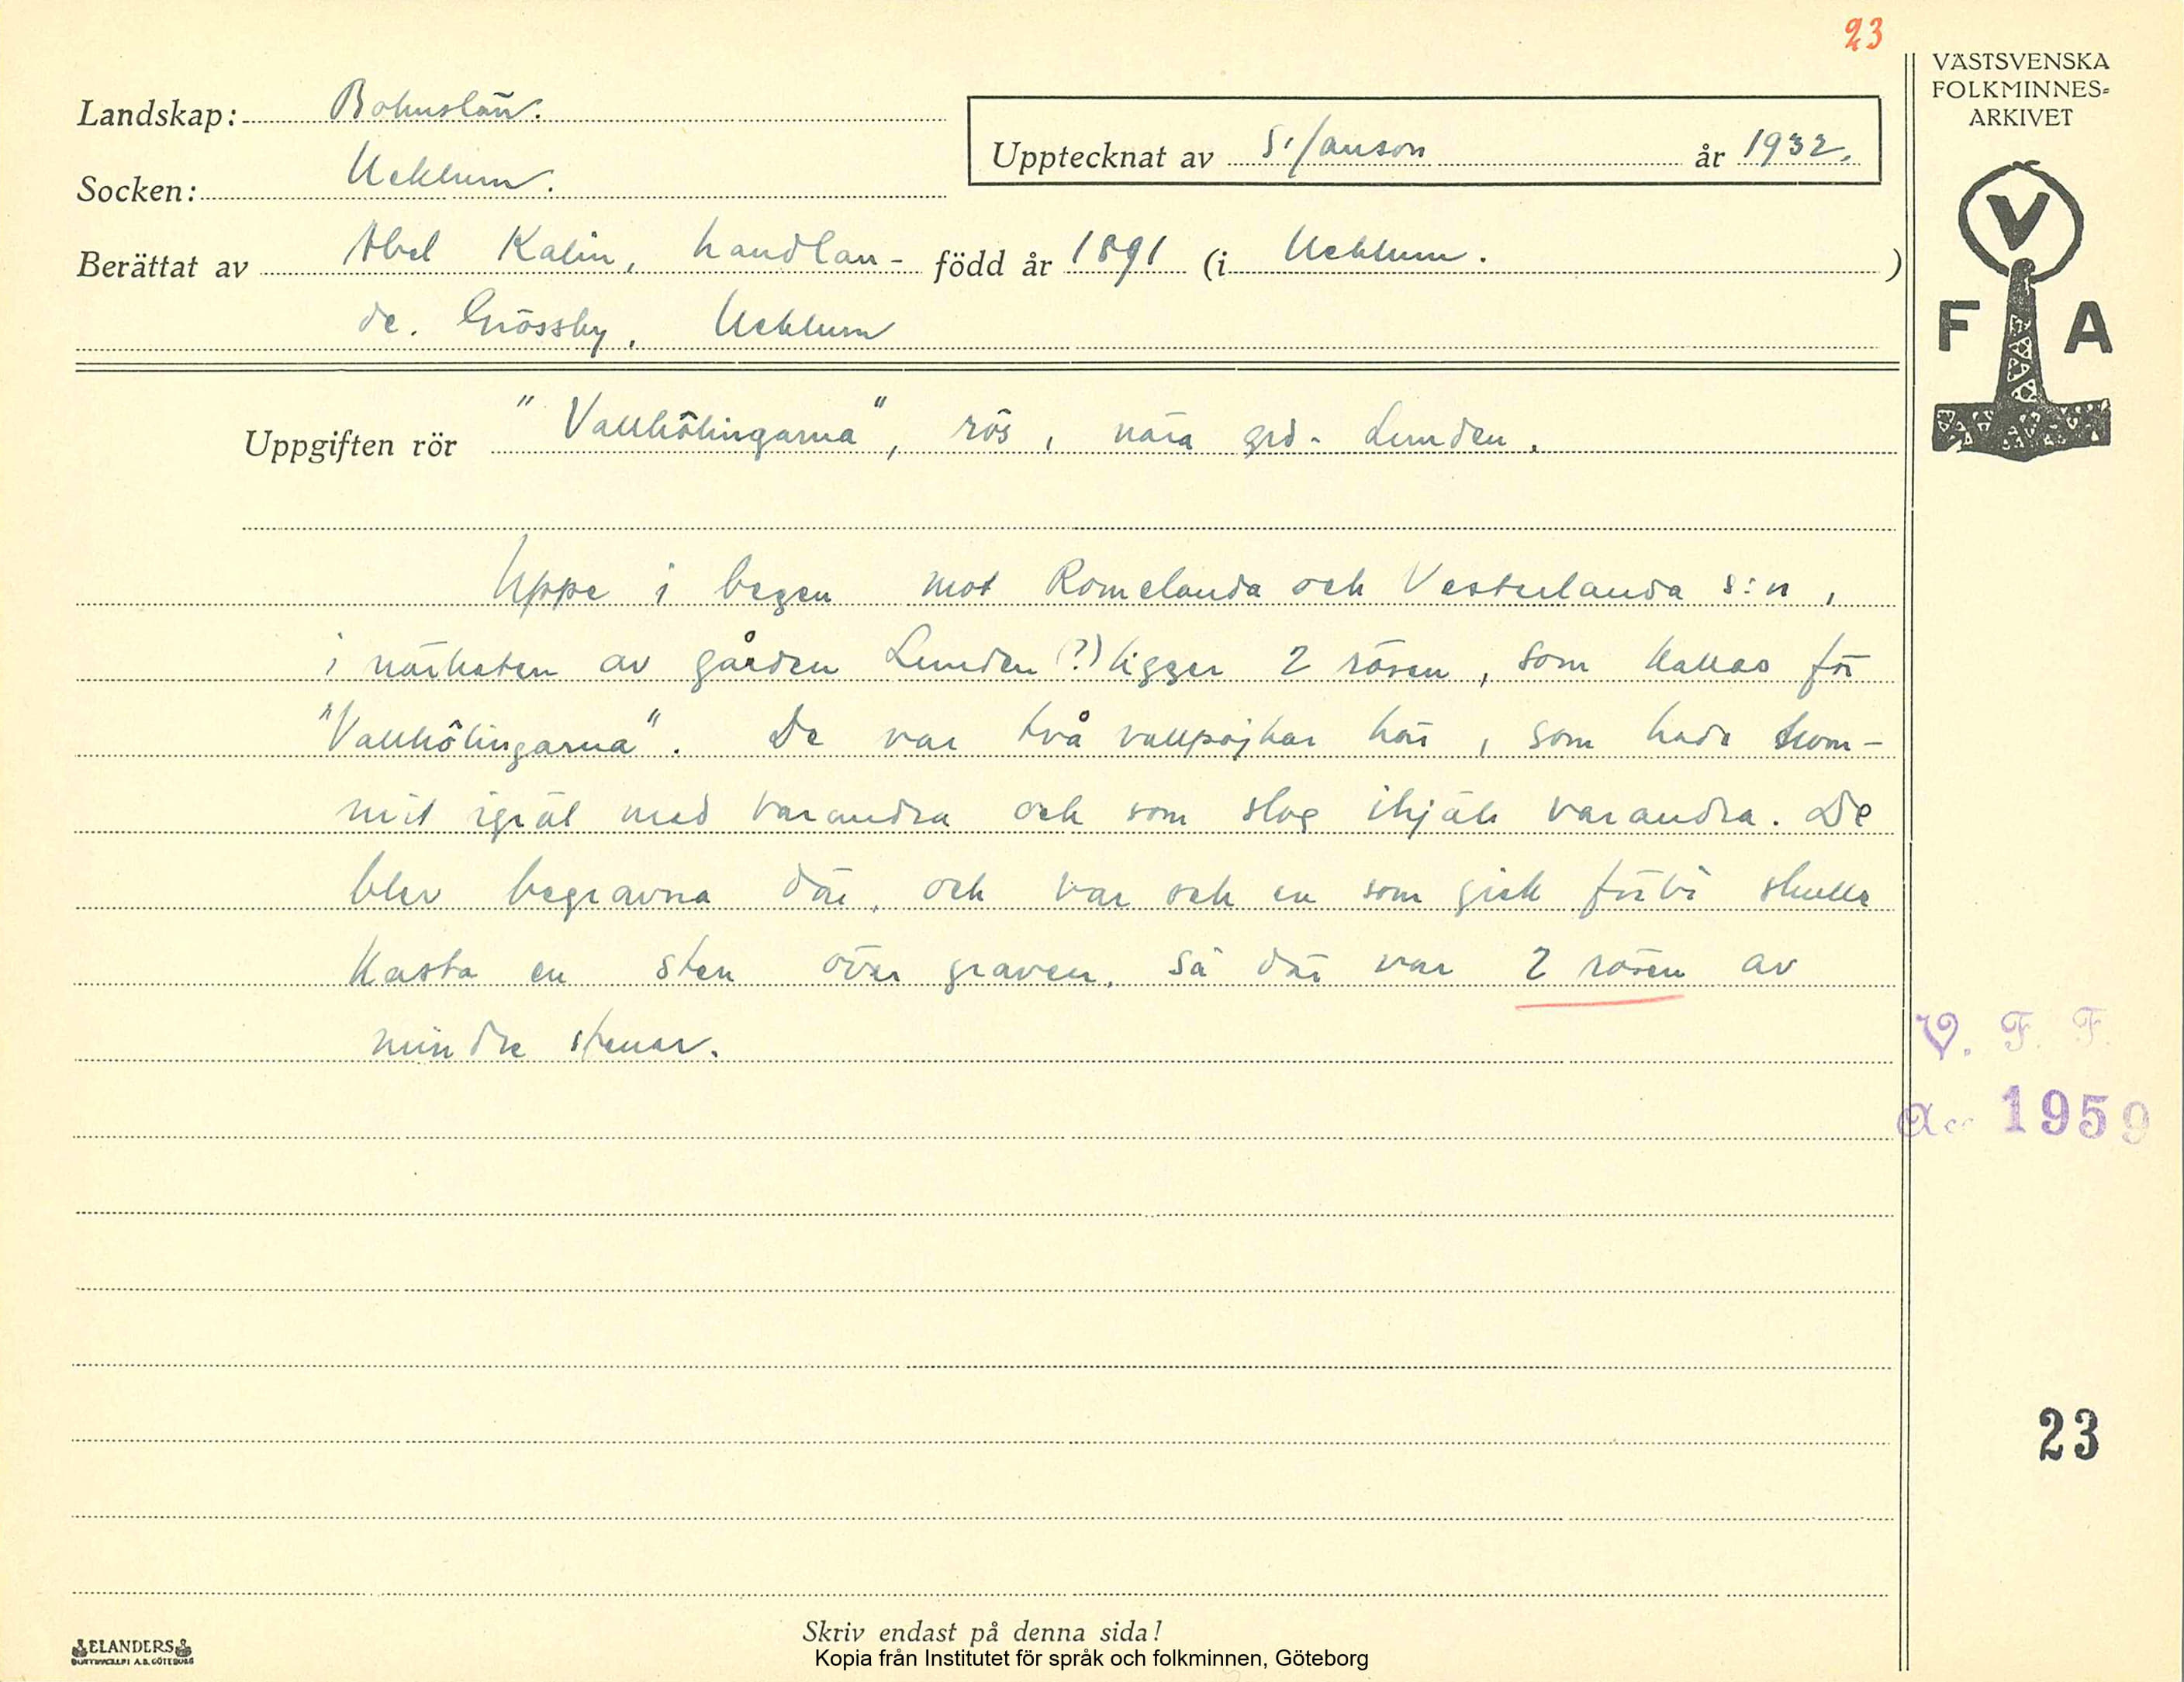 23
VÄSTSVENSKA
FOLKMINNES-
ARKIVET
Landskap: Bohuslän.
Upptecknat av S. Janson år 1932.
Socken: Ucklum.
Berättat av Abel Kalin, handlan- född år 1891 (i Ucklum. )
de. Grössby, Ucklum
V
F A
Uppgiften rör "Vallhôlingarna", rös, nära grd. Lunden.
Uppe i bergen mot Romelanda och Vesterlanda s:n,
i närheten av gården Lunden (?) ligger 2 rösen, som kallas för
"Vallhôlingarna". De var två vallpojkar här, som hade kom-
mit igräl med varandra och som slog ihjäl varandra. De
blev begravna där, och var och en som gick förbi skulle
kasta en sten över graven. Så där var 2 rösen av
mindre stenar.
V. F. F.
Acc 1959
23
Skriv endast på denna sida!
ELANDERS
BOKTRYCKERI A.B. GÖTEBORG
Kopia från Institutet för språk och folkminnen, Göteborg